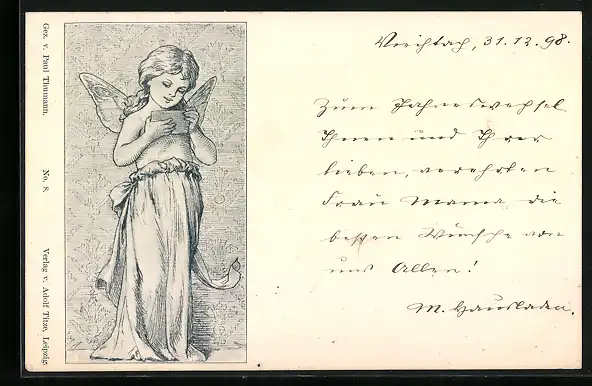 Gez. v. Paul Thumann. No. 8. Verlag v. Adolf Titze, Leipzig.
31.12.98.
Zum Jahreswechsel
Ihnen und Ihrer
lieben, verehrten
Frau Mama die
besten Wünsche von
uns Allen!
M. Hausladen.